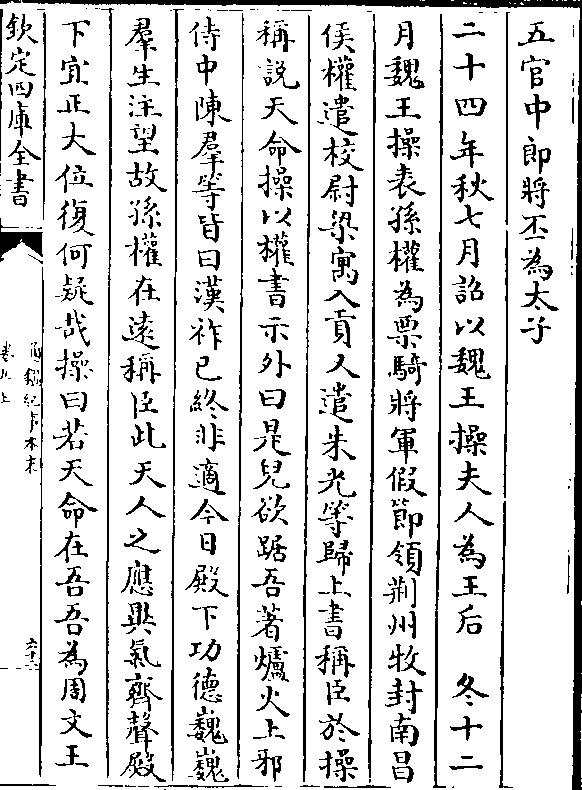 五官中郎將丕為太子
二十四年秋七月詔以魏王操夫人為王后　冬十二
月魏王操表孫權為票騎將軍假節領荆州牧封南昌
侯權遣校尉梁寓入貢又遣朱光等歸上書稱臣於操
稱說天命操以權書示外曰是兒欲踞吾著爐火上邪
侍中陳羣等皆曰漢祚已終非適今日殿下功德巍巍
羣生注望故孫權在逺稱臣此天人之應異氣齊聲殿
下宜正大位復何疑哉操曰若天命在吾吾為周文王
欽定四庫全書
通鑑紀事本末
卷九上
六十三